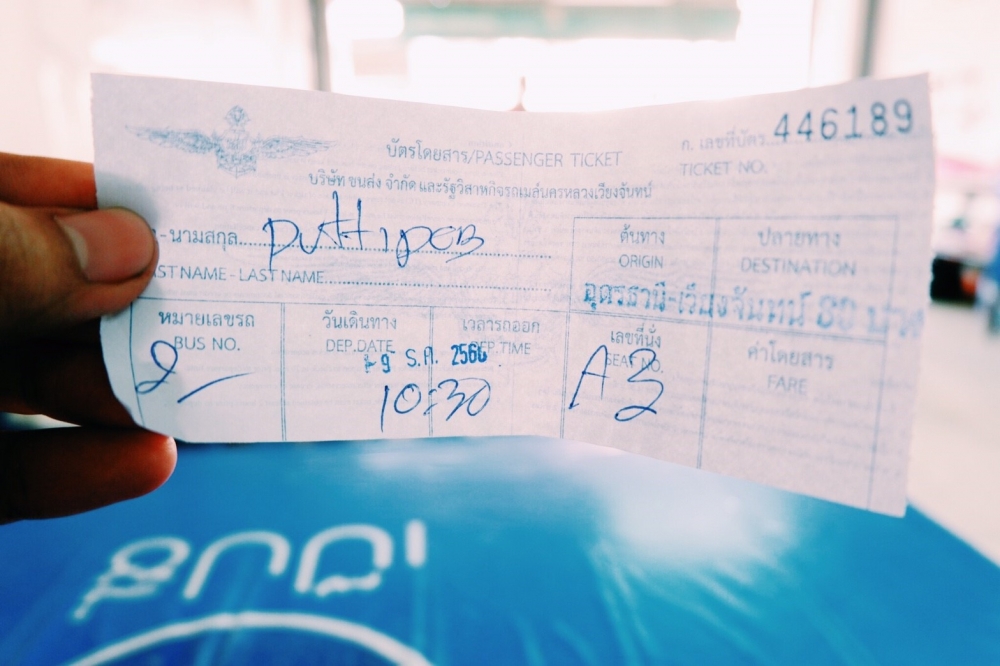 บัตรโดยสาร/PASSENGER TICKET
ก. เลขที่บัตร...446189
TICKET NO.
บริษัท ขนส่ง จำกัด และรัฐวิสาหกิจรถเมล์นครหลวงเวียงจันทน์
-นามสกุล...
ST NAME - LAST NAME...
ต้นทาง
ORIGIN
ปลายทาง
DESTINATION
อุดรธานี-เวียงจันทน์ 80 บาท
หมายเลขรถ
BUS NO.
วันเดินทาง
DEP.DATE
9 ธ.ค.
เวลารถออก
DEP.TIME
10:30
เลขที่นั่ง
SEAT NO.
A3
ค่าโดยสาร
FARE